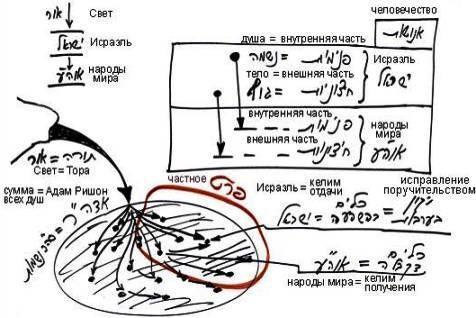 человечество
אנושות
אור Свет
ישראל Исраэль
אוה"ע народы мира
душа = внутренняя часть
פנימיות = נשמה
тело = внешняя часть
חיצוניות = גוף
Исраэль
ישראל
внутренняя часть
פנימיות
внешняя часть
חיצוניות
народы
мира
אוה"ע
תורה = אור
Свет=Тора
сумма = Адам Ришон
всех душ
אדה"ר = סה"כ נשמות
частное
פרט
Исраэль = келим
отдачи
исправление
поручительством
תיקון
בערבות
כלים
דהשפעה = ישראל
כלים
דקבלה = אוה"ע
народы мира = келим
получения